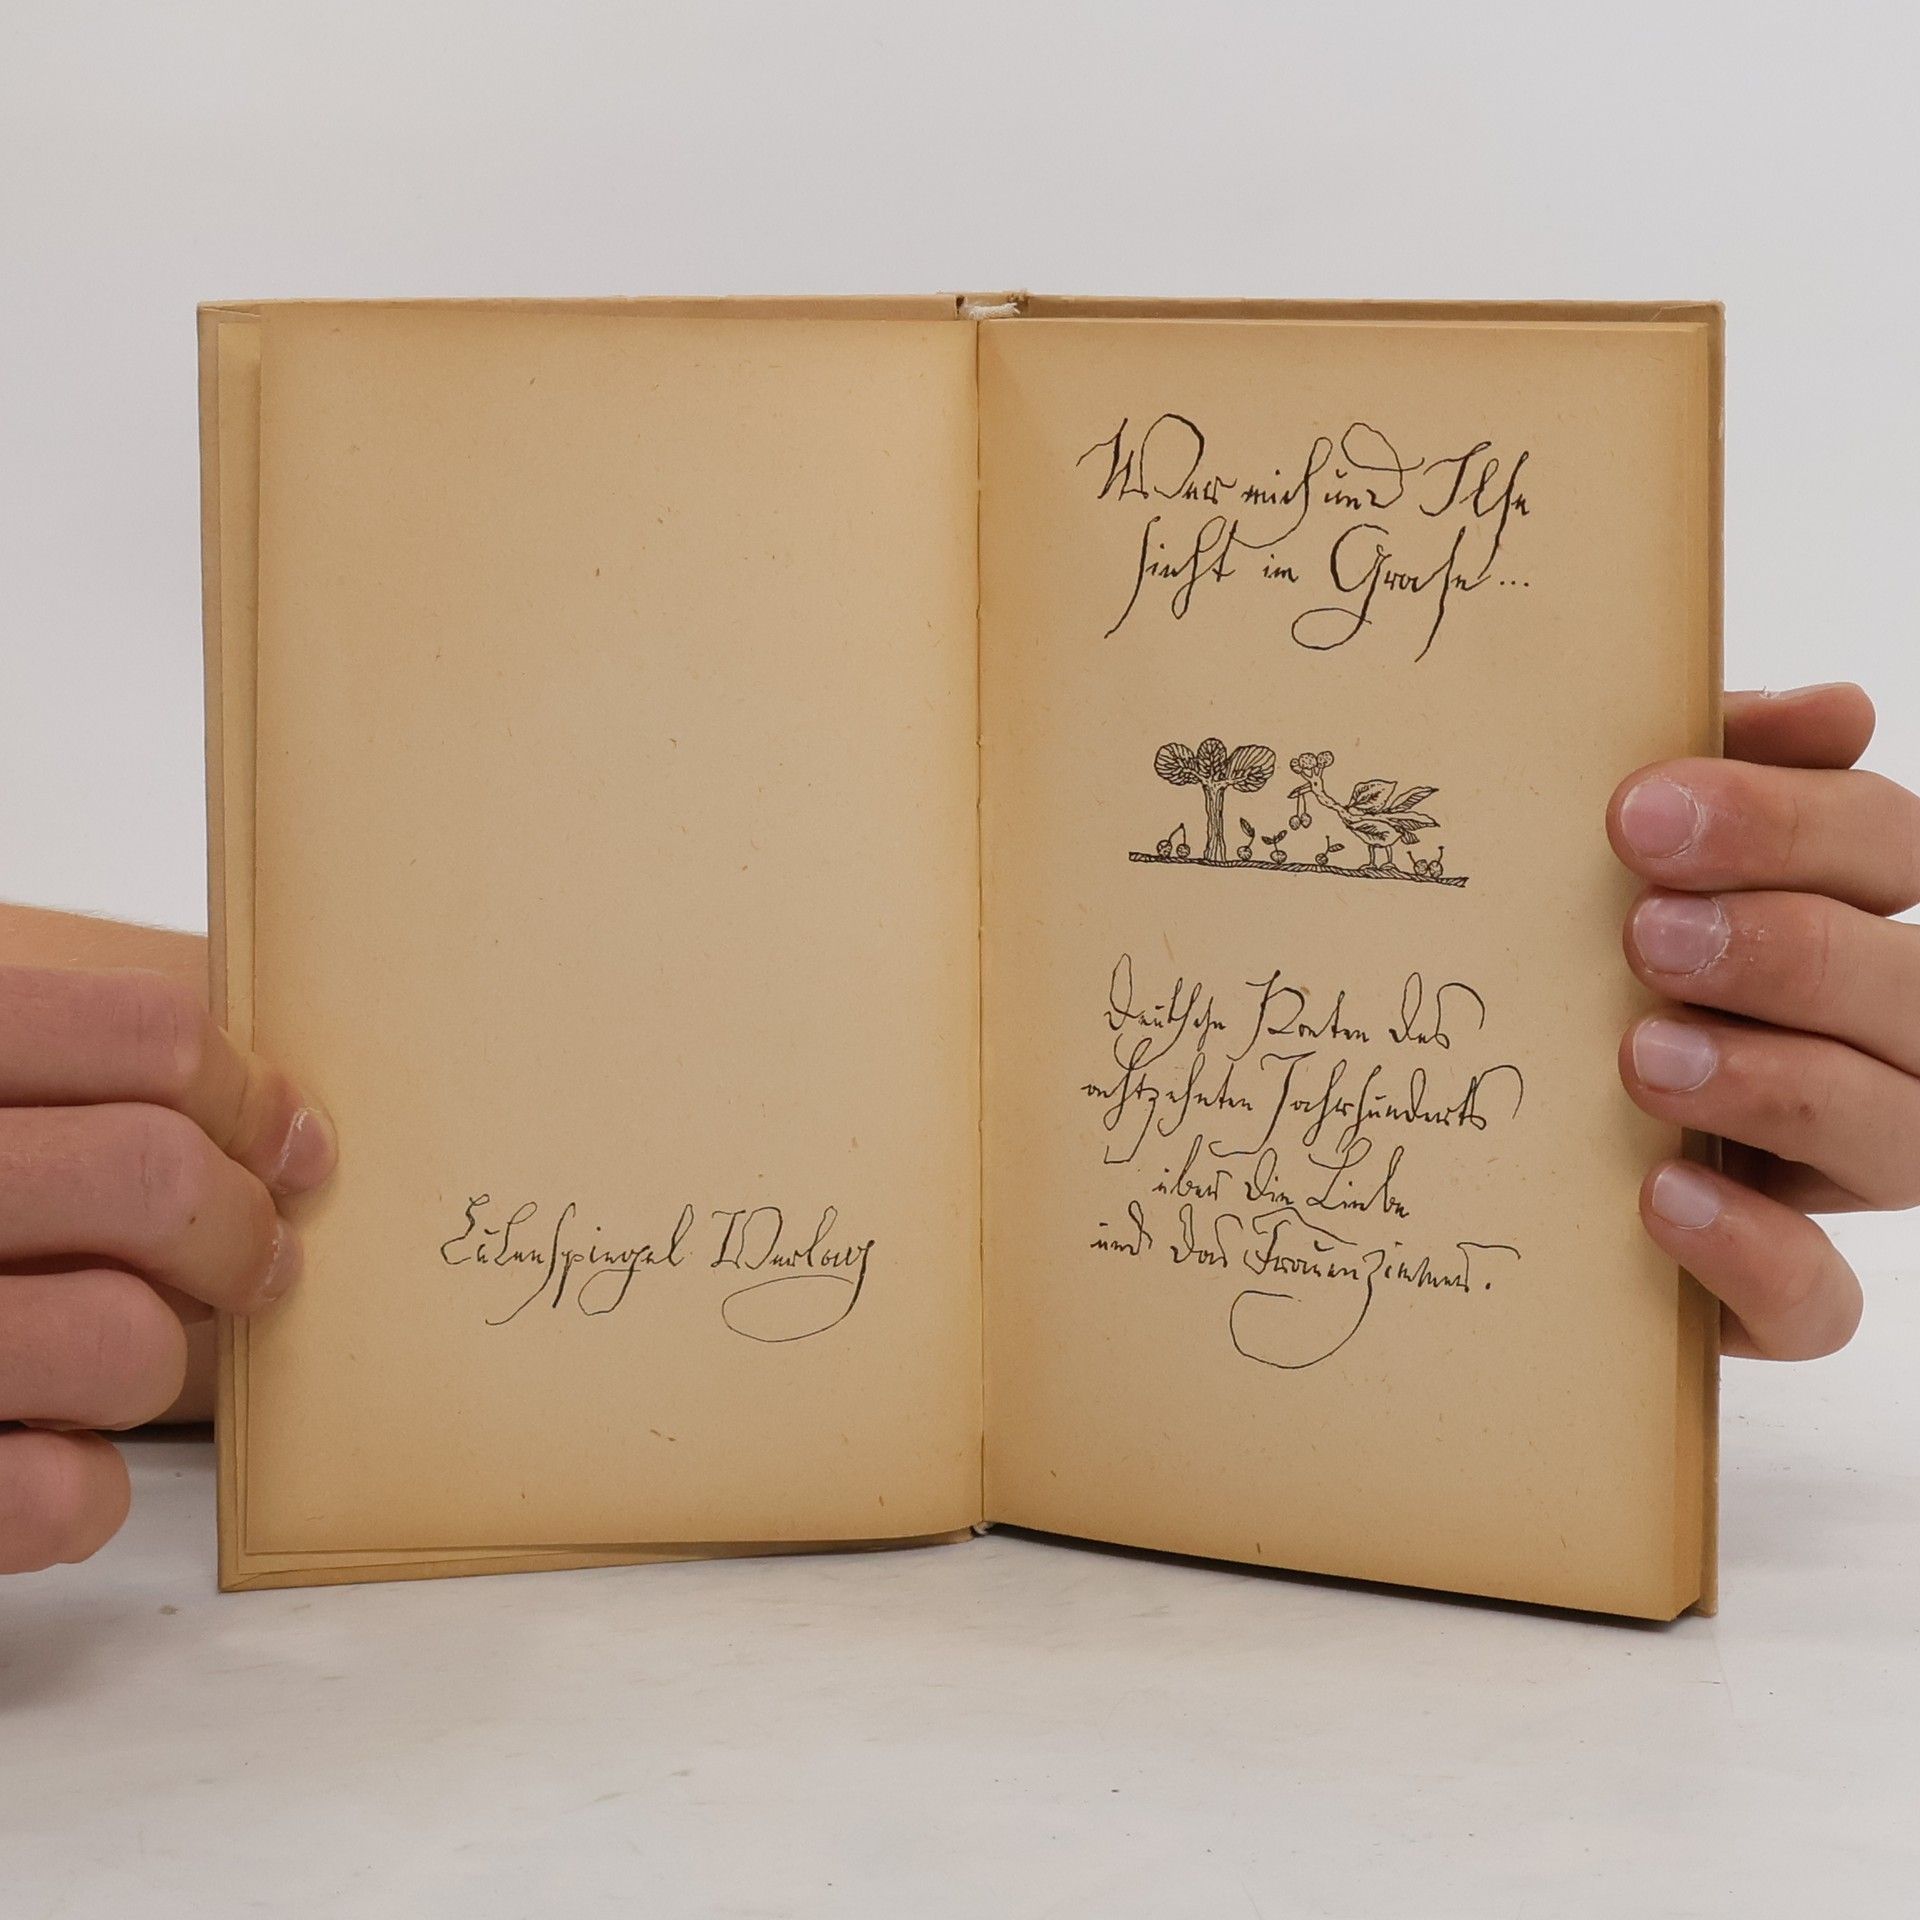 Eulenspiegel Verlag
Wer mich und Ilse
sieht im Grase...
Deutsche Poeten des
achtzehnten Jahrhunderts
über die Liebe
und das Frauenzimmer.